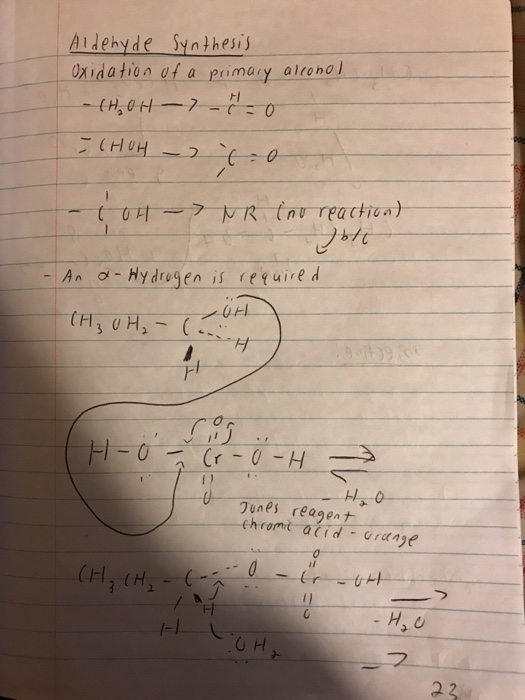 Aldehyde Synthesis
Oxidation of a primary alcohol
- CH₂OH → - C = O
H
= CHOH → C = O
- C OH → NR (no reaction)
b/c
- An α-Hydrogen is required
CH₃ OH₂ - C - OH
H
H
O
H - O - Cr - O - H ⇌
O
- H₂O
Jones reagent
chromic acid - orange
O
CH₃ CH₂ - C --- O - Cr - OH →
H
O
H
- H₂O
OH₂
→
23